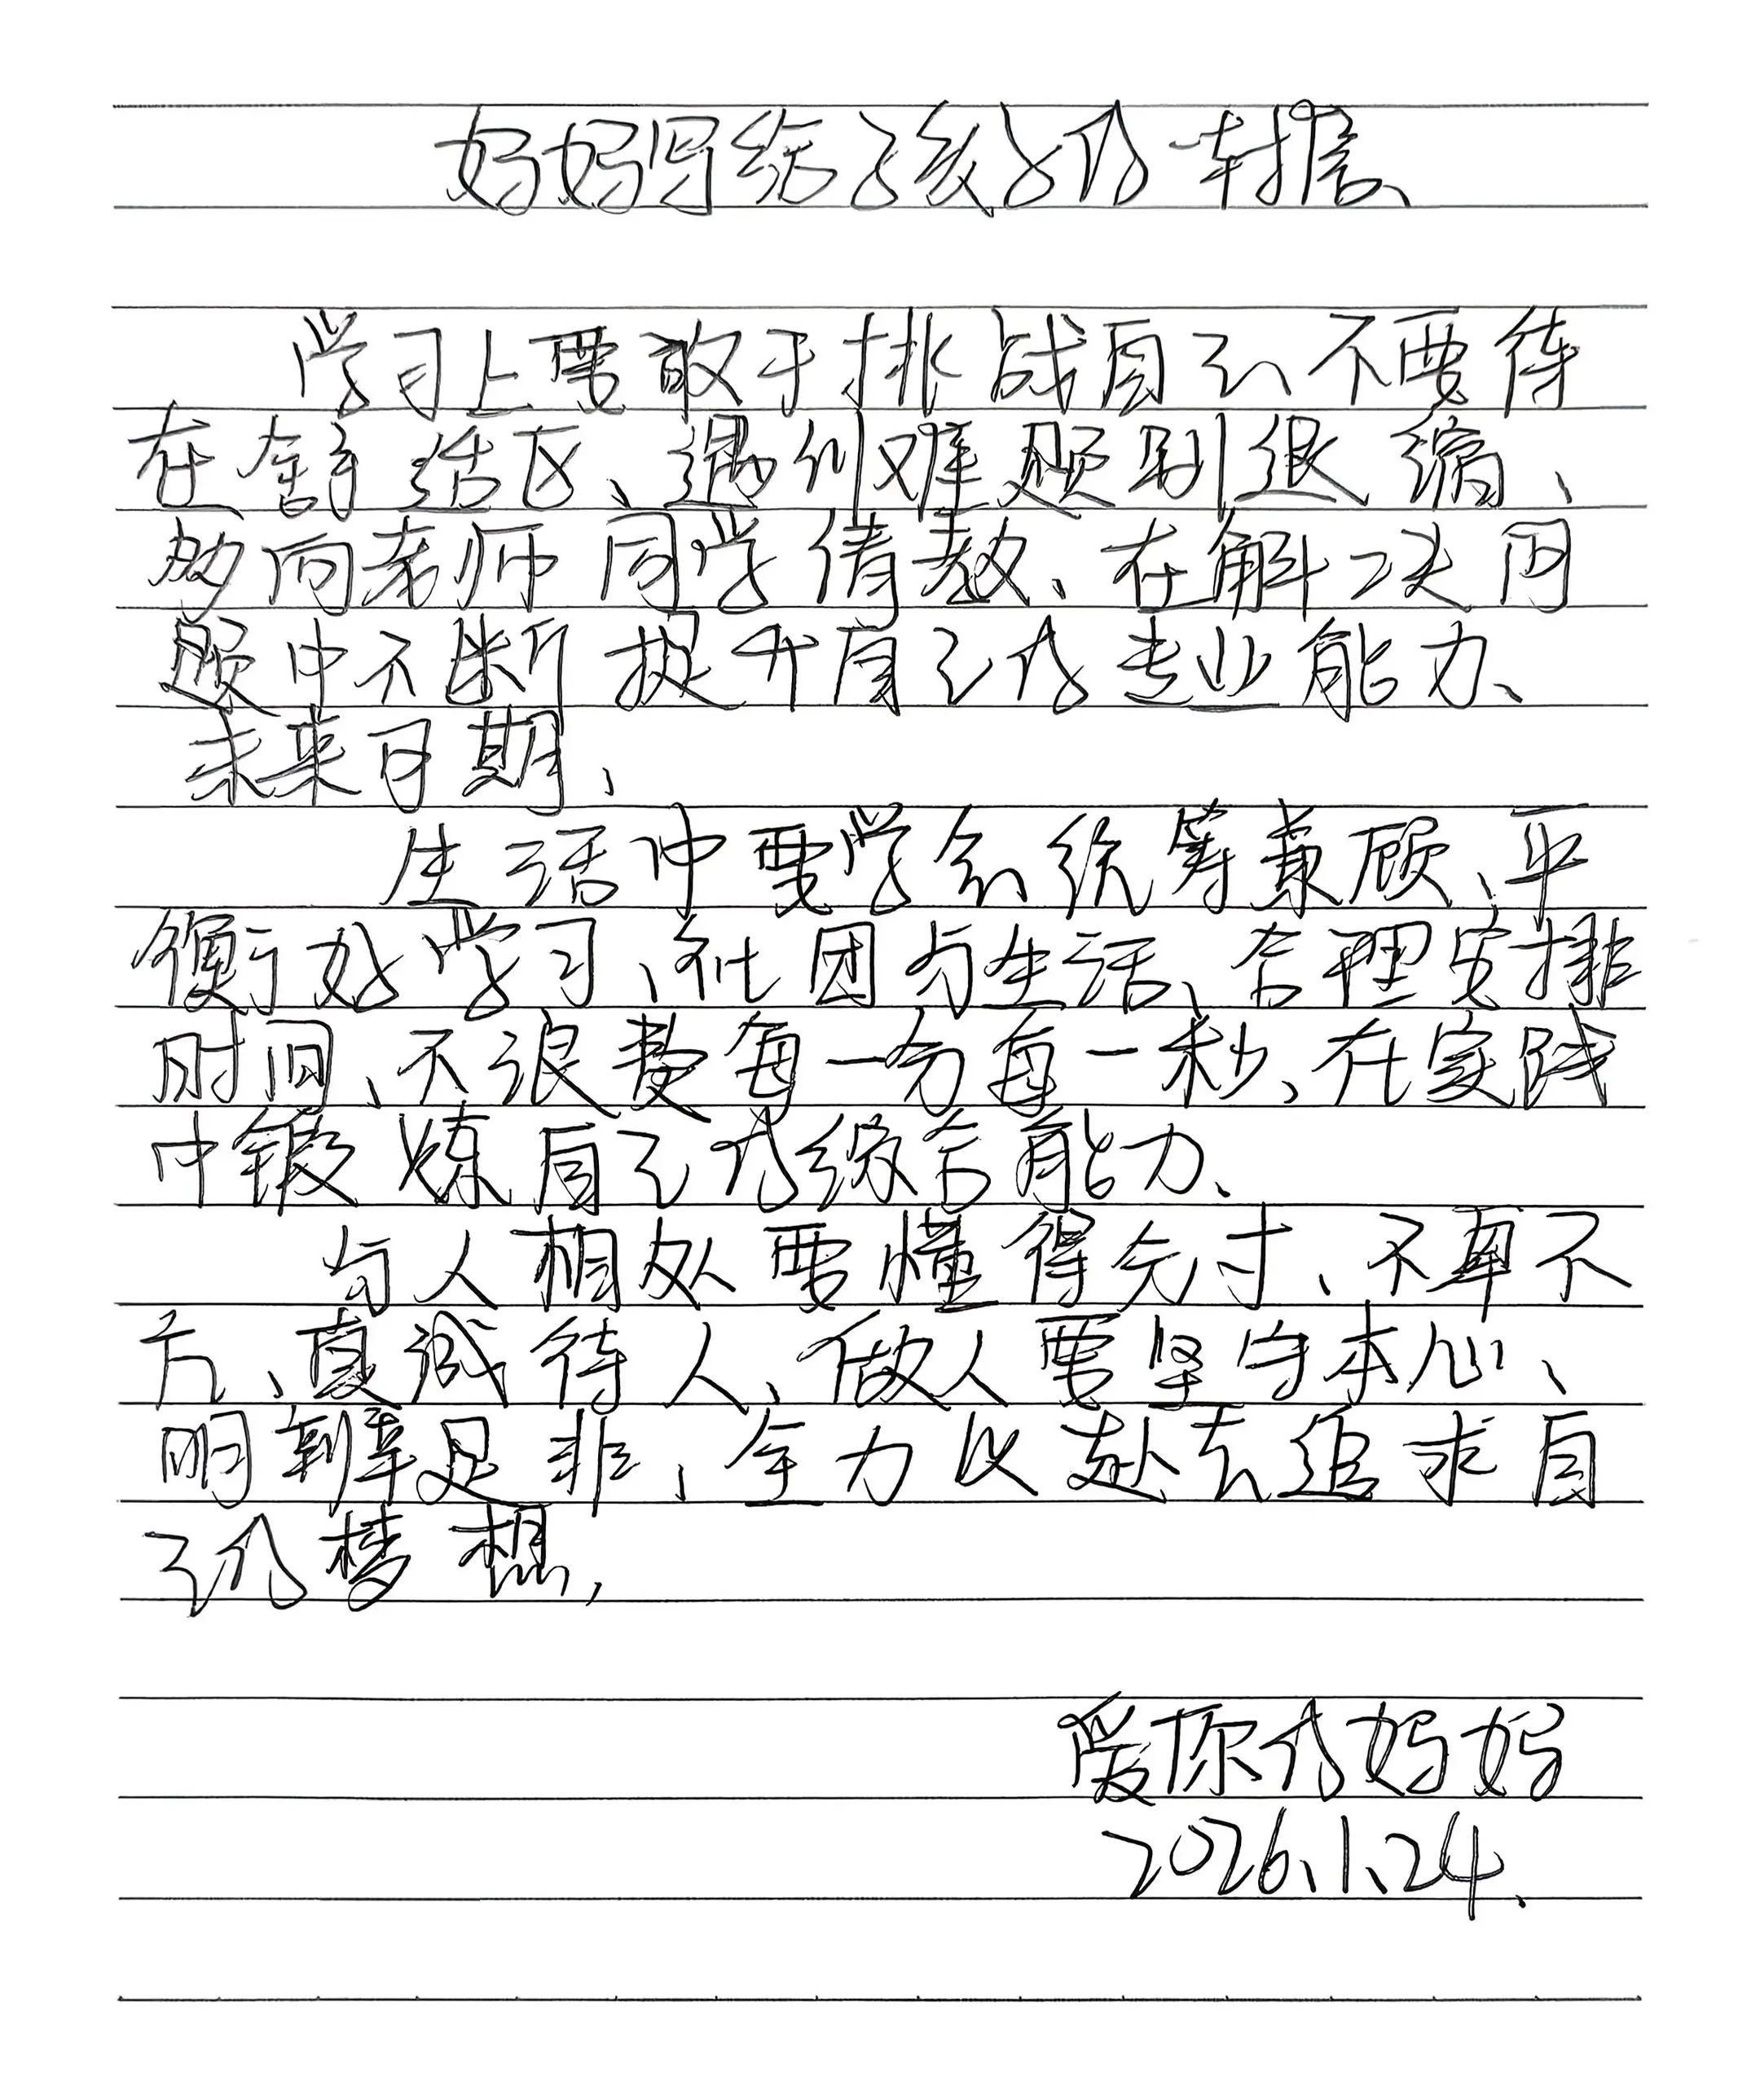 妈妈写给孩子的
学习上要敢于挑战自己不要待
在舒适区、遇到难题别退缩、
多向老师同学请教、在解决问
题中不断提升自己的专业能力、
未来日期、
生活中要学会统筹兼顾、平
衡好学习、社团与生活、合理安排
时间、不浪费每一分每一秒、在实践
中锻炼自己的综合能力、
与人相处要懂得分寸、不卑不
亢、真诚待人、做人要坚守本心、
明辨是非、全力以赴去追求自
己的梦想,
爱你的妈妈
2026.1.24.